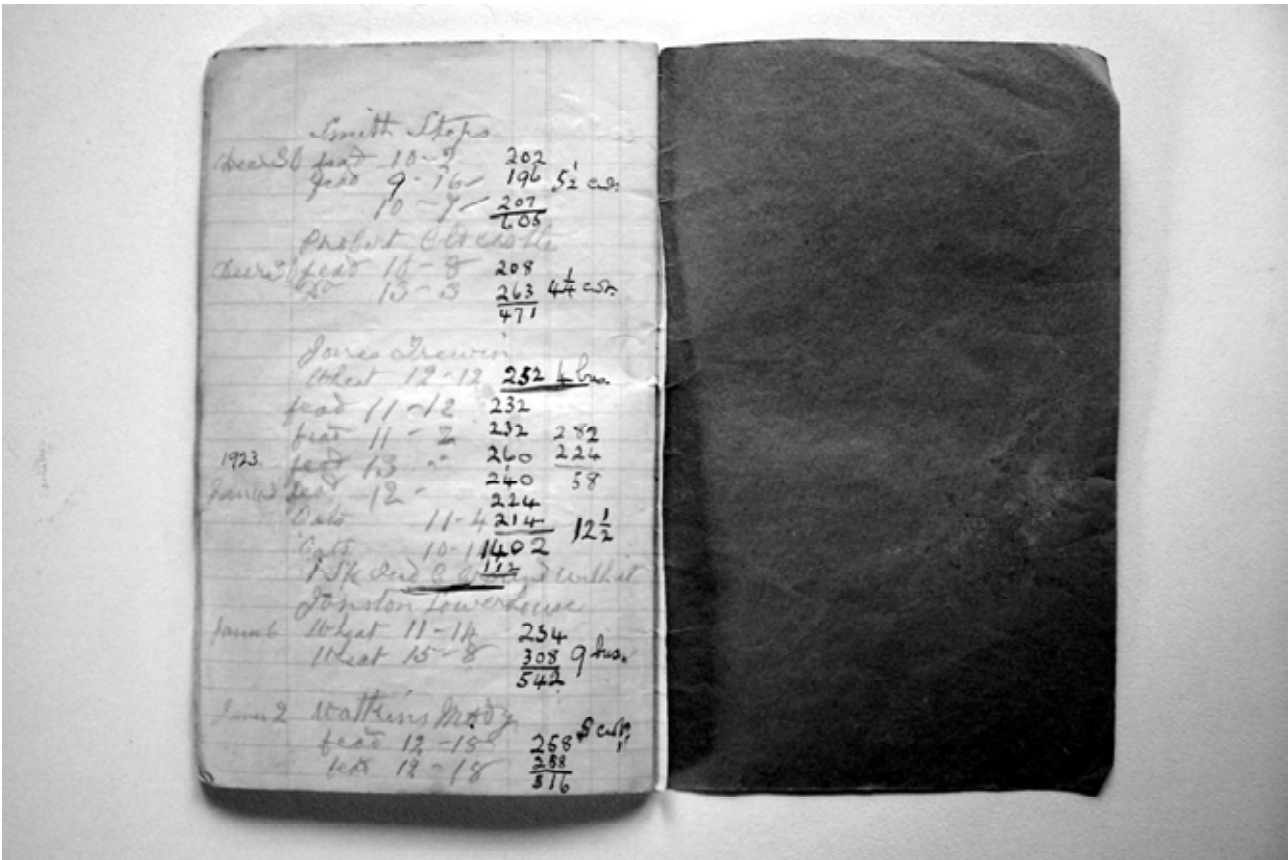 Smith Stops
Decer 30 feed 10-2 202
feed 9-16 196 5½ cwt.
10-7 207
605
Probert
Decer 30 feed 10-8 208
Do 13-3 263 4¼ cwt.
471
Jones Trewin
Wheat 12-12 252 4 bus.
feed 11-12 232
feed 11-2 232 282
1923. feed 13 - 260 224
feed 12 - 240 58
224
Oats 11-4 214 12½
Oats 1402
112
1 Sk and with it
Jonston Lowerhouse
Wheat 11-14 234
Wheat 15-8 308 9 bus.
542
Watkins
feed 12-18 258 5 cwt.
feed 12-18 258
516